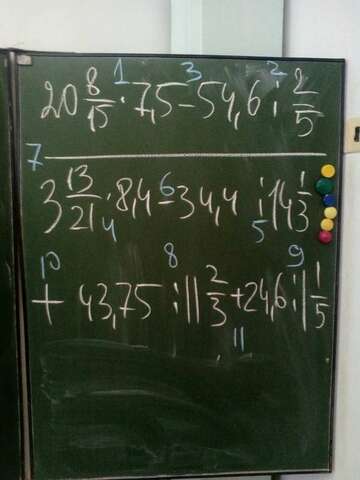 1 3 2
20 8/15 · 7,5 - 54,6 : 2/5
7
3 13/21 · 8,4 - 34,4 : 14 1/3
4 6 5
10 8 9
+ 43,75 : 11 2/3 + 24,6 : 1 1/5
11